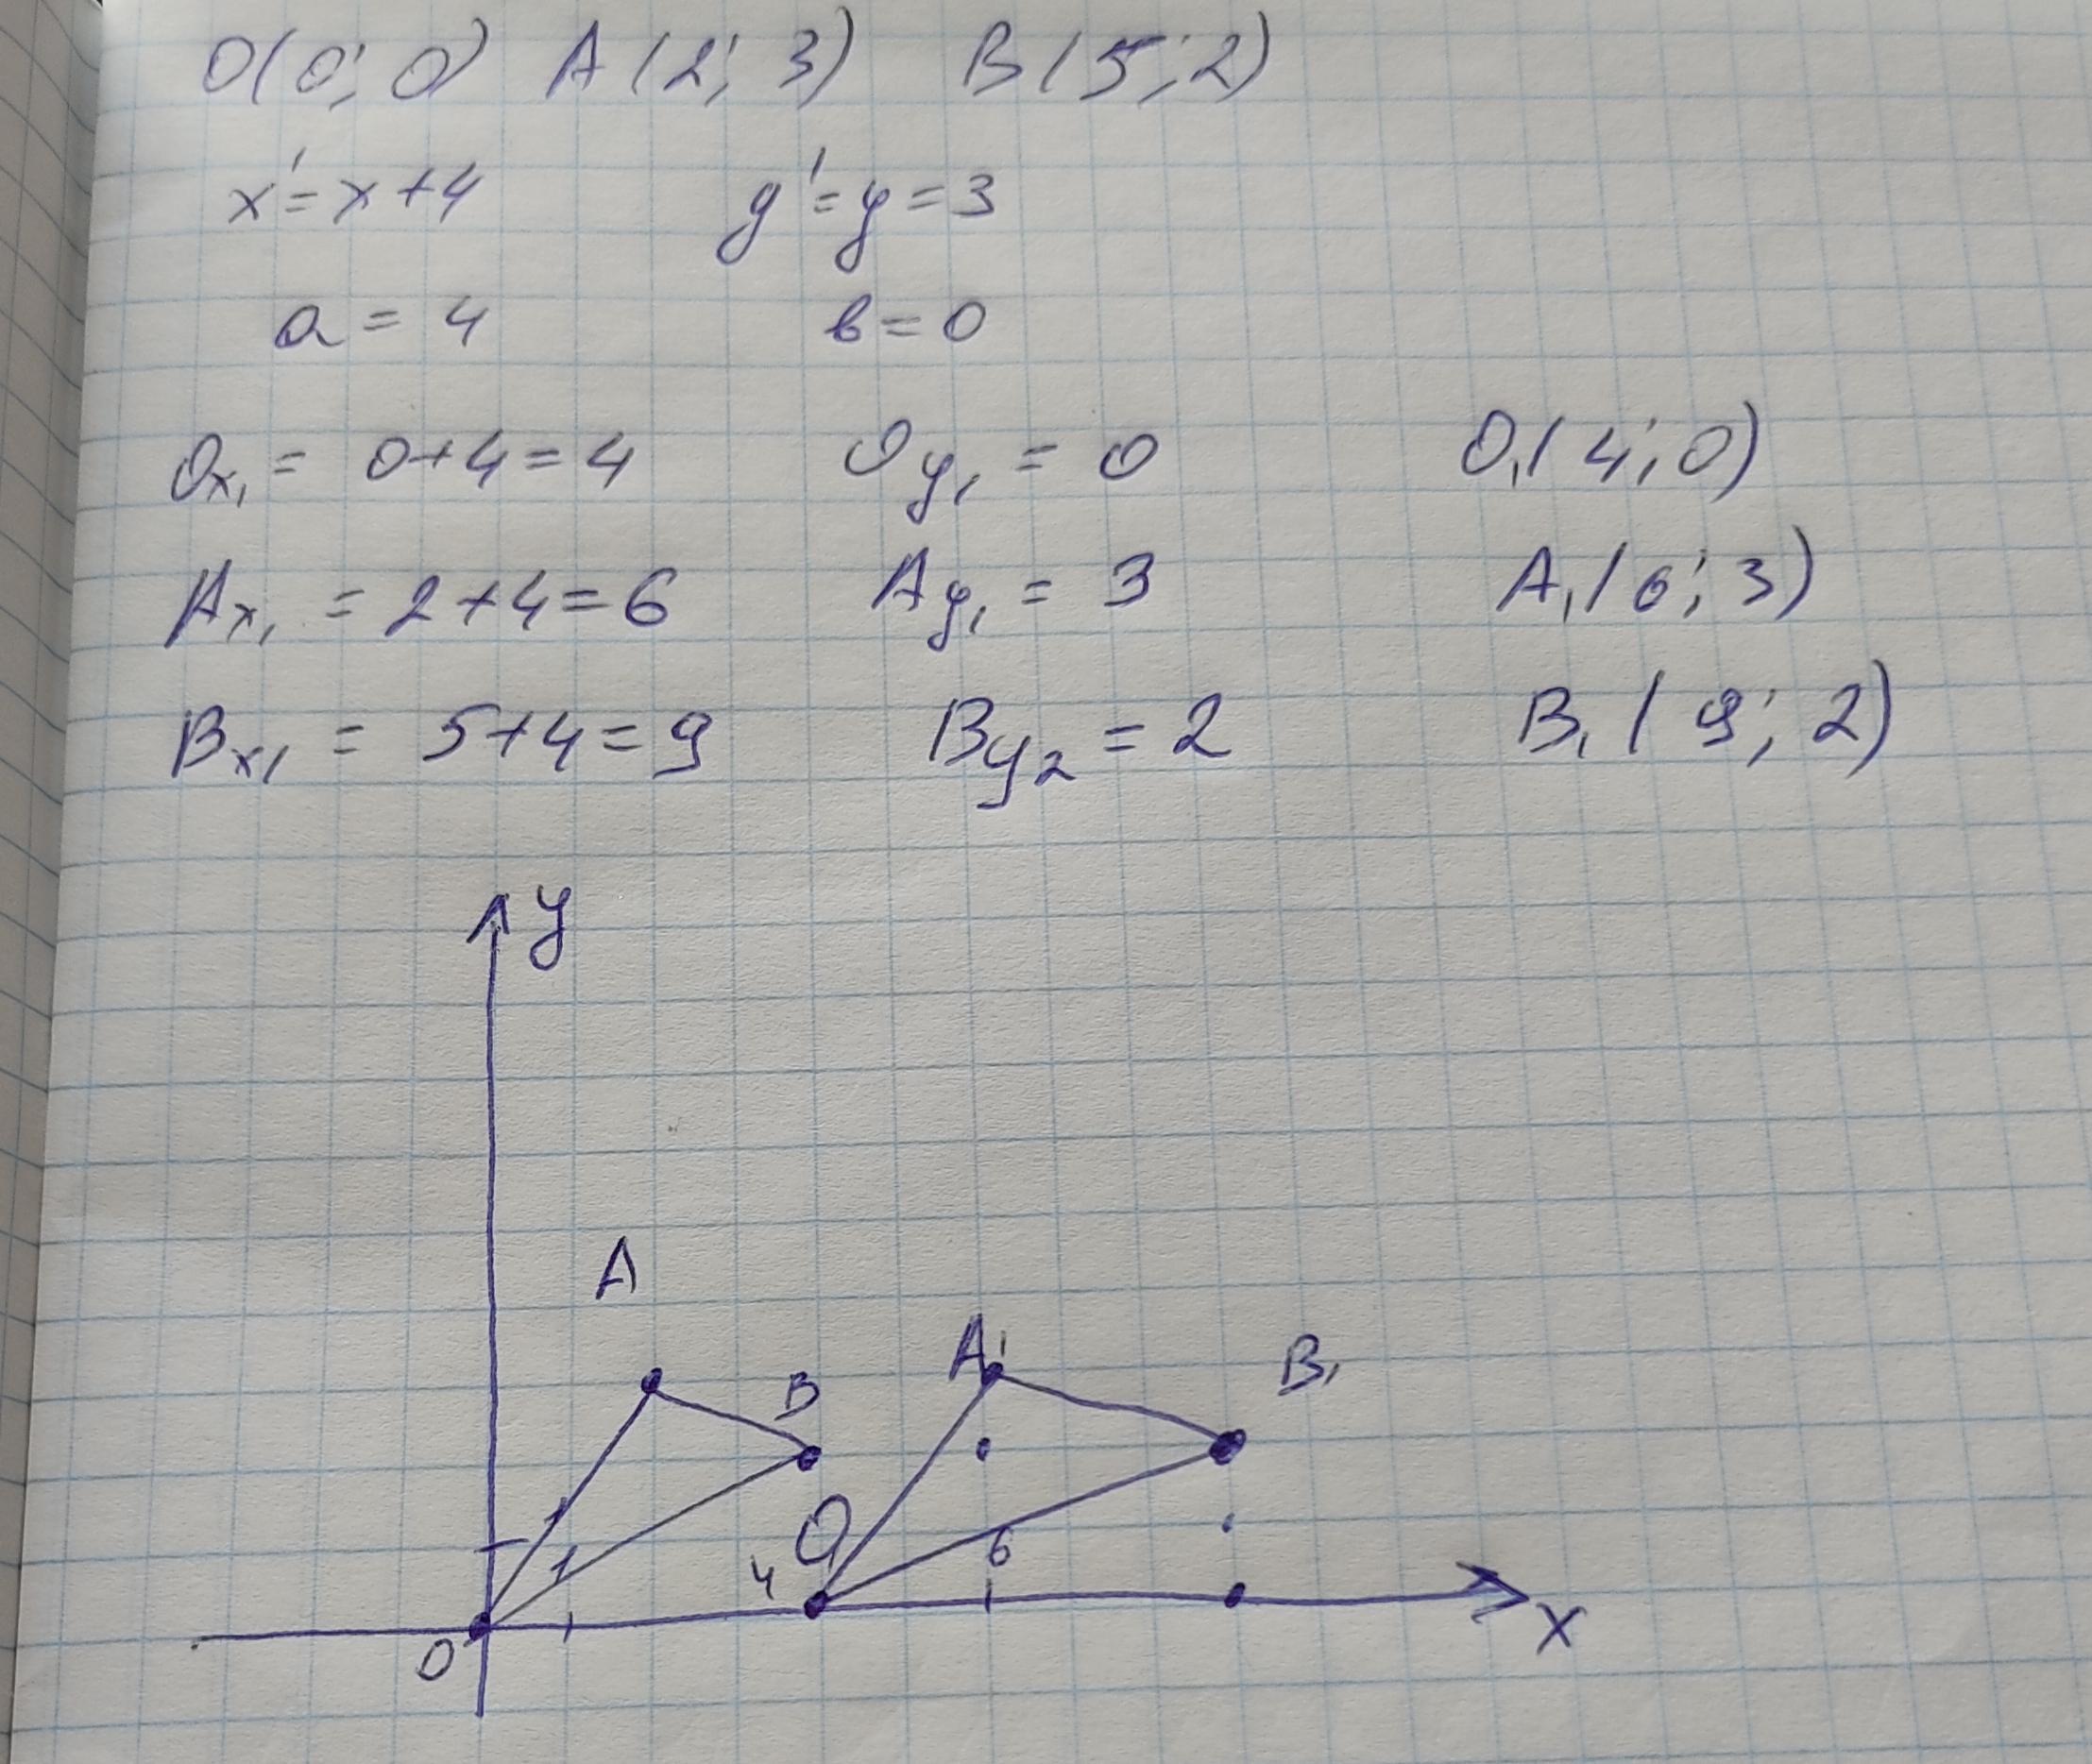 O(0; 0) A(2; 3) B(5; 2)
x' = x + 4 y' = y = 3
a = 4 в = 0
Ox₁ = 0+4=4 Oy₁ = 0 O₁(4; 0)
Ax₁ = 2+4=6 Ay₁ = 3 A₁(6; 3)
Bx₁ = 5+4=9 By₂ = 2 B₁(9; 2)
y
A
A₁ B₁
B
O
4 6
O x